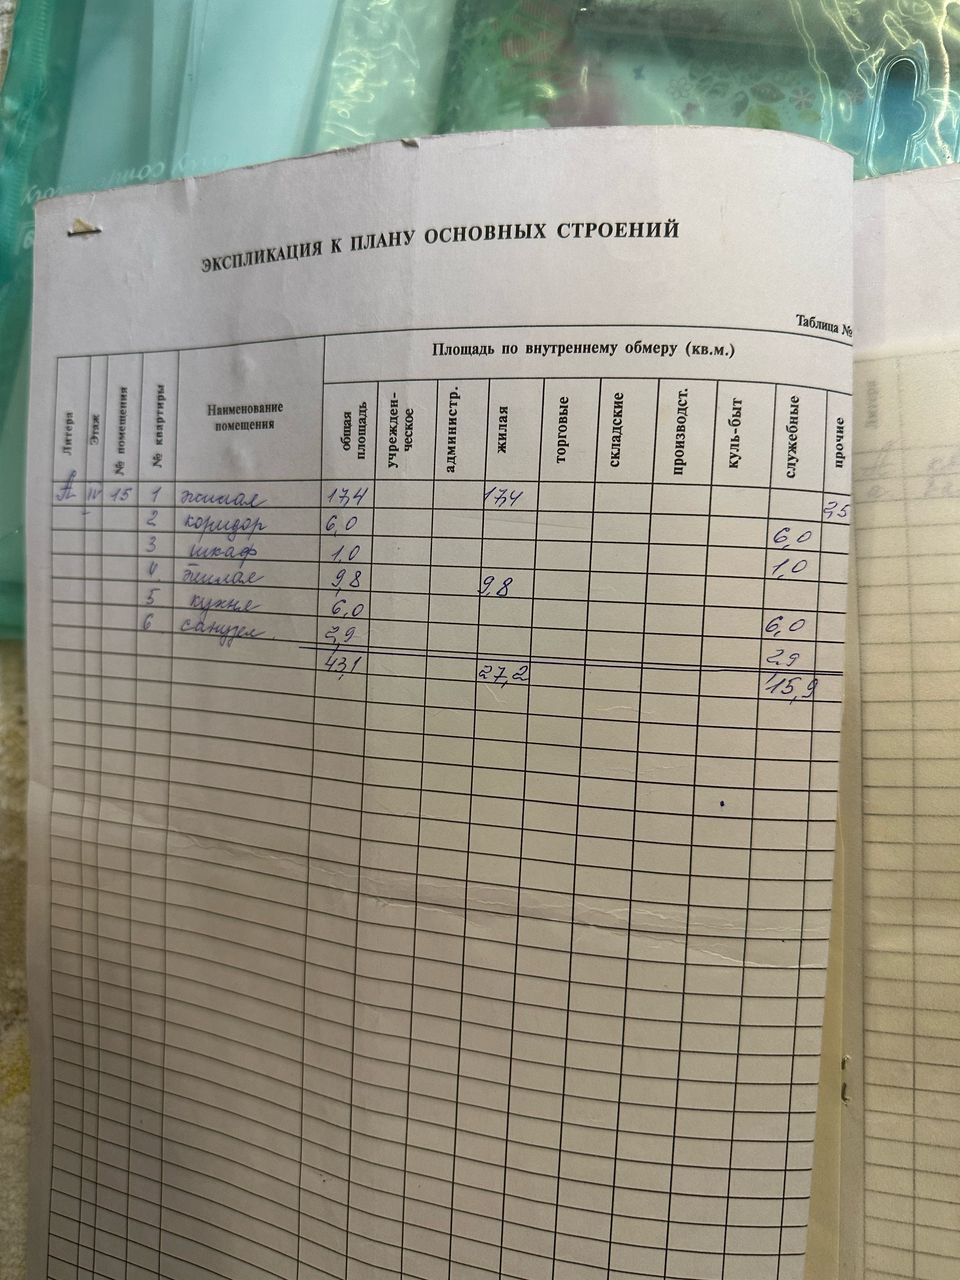 ЭКСПЛИКАЦИЯ К ПЛАНУ ОСНОВНЫХ СТРОЕНИЙ
Таблица №
Площадь по внутреннему обмеру (кв.м.)
Литера Этаж № помещения № квартиры Наименование помещения общая площадь учрежден-ческое администр. жилая торговые складские производст. куль-быт служебные прочие
А IV 15 1 жилая 17,4 17,4 2,5
2 коридор 6,0 6,0
3 шкаф 1,0 1,0
4 жилая 9,8 9,8
5 кухня 6,0 6,0
6 санузел 2,9 2,9
43,1 27,2 15,9